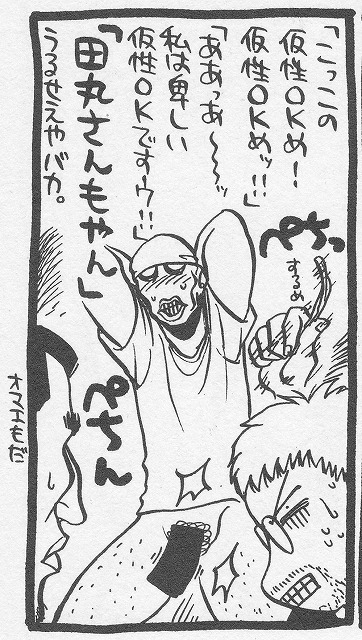 「こっこの
仮性OKめ!
仮性OKめッ!!」
「ああっあ〜〜ッ
私は卑しい
仮性OKですーゥ!!」
「田丸さんもやん」
うるせえやバカ。
ぺちっ
するめ
ぺちん
オマエもだ